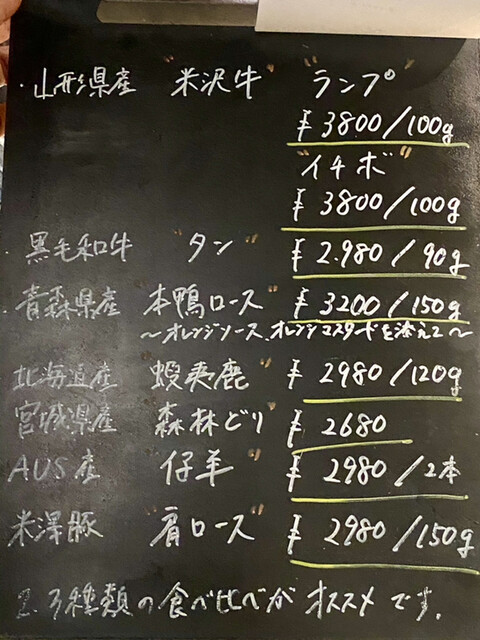 ・山形県産 "米沢牛" "ランプ"
¥3800/100g
"イチボ"
¥3800/100g
黒毛和牛 "タン" ¥2.980/90g
青森県産 "本鴨ロース" ¥3200/150g
〜オレンジソース、オレンジマスタードを添えて〜
北海道産 "蝦夷鹿" ¥2980/120g
宮城県産 "森林どり" ¥2680
AUS産 "仔羊" ¥2980/2本
米澤豚 "肩ロース" ¥2980/150g
2.3種類の食べ比べがオススメです。